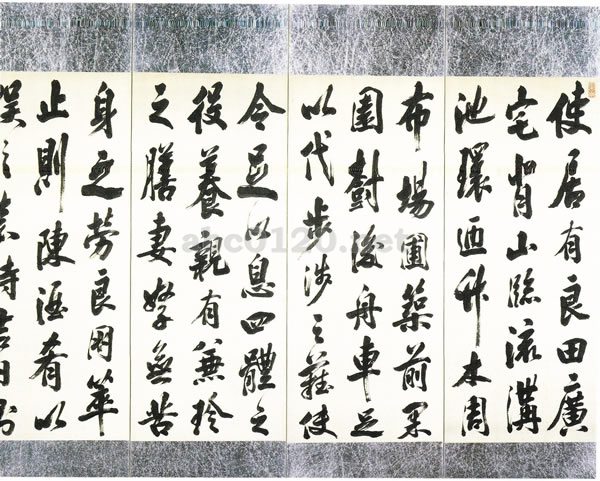 使居有良田廣
宅背山臨流溝
池環匝竹木周
布場圃築前果
園樹後舟車足
以代步涉之難使
令足以息四體之
役養親有兼珍
之膳妻孥無苦
身之勞良朋萃
止則陳酒肴以
娛之嘉時吉日則
abc0120.net